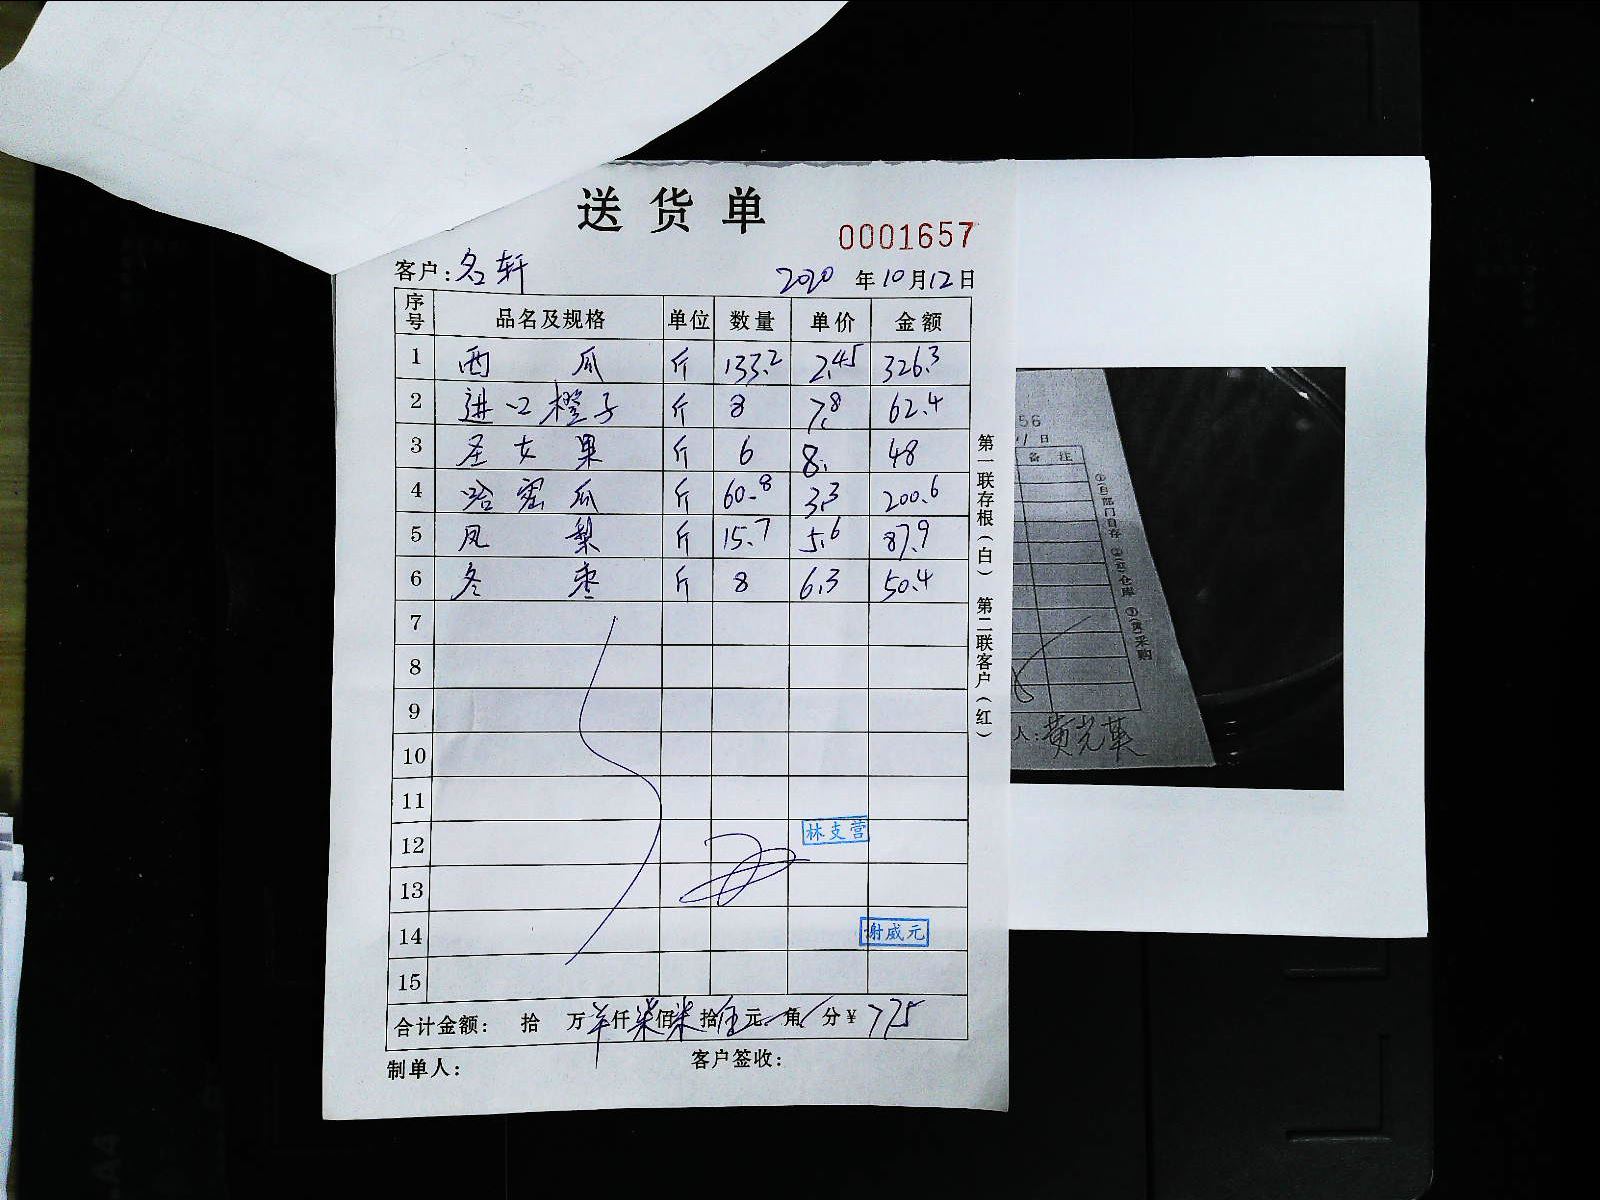 送货单
0001657
客户:名轩 2020年10月12日
序号 品名及规格 单位 数量 单价 金额
1 西瓜 斤 133.2 2.45 326.3
2 进口橙子 斤 8 7.8 62.4
3 圣女果 斤 6 8. 48
4 哈密瓜 斤 60.8 3.3 200.6
5 凤梨 斤 15.7 5.6 87.9
6 冬枣 斤 8 6.3 50.4
7
8
9
10
11
12 林支营
13
14 谢威元
15
合计金额: 拾 万 仟柒佰柒拾伍元 角 分¥ 775
制单人: 客户签收:
第一联存根(白) 第二联客户(红)
56
11日
备注
①(白)部门自存 ②(红)仓库 ③(黄)采购
人:黄光英